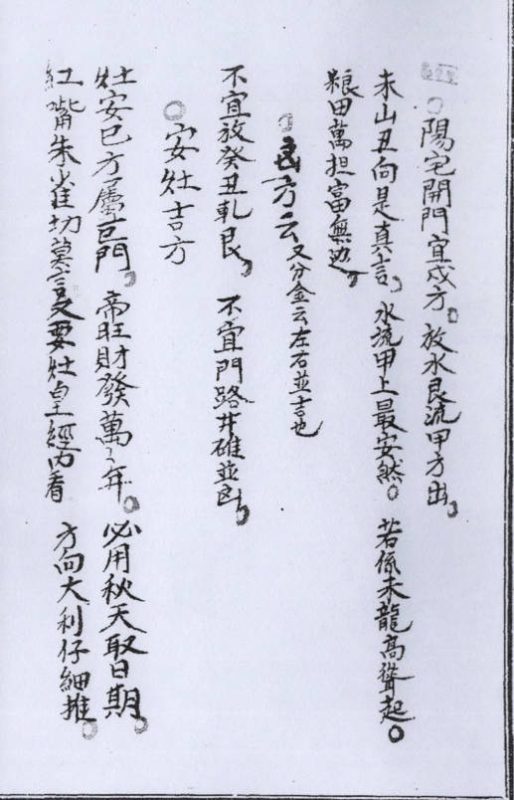 ○陽宅開門宜戌方。放水艮流甲方出。
未山丑向是真言。水流甲上最安然。若係未龍高聳起。
粮田萬担富無边。
○艮方云又分金云左右並吉也
不宜放癸丑乾艮。不宜門路井碓並凶。
○安灶吉方
灶安巳方屬巨門。帝旺財發萬々年。必用秋天取日期。
紅嘴朱雀切莫言又要灶皇經內看 方向大利仔細推。